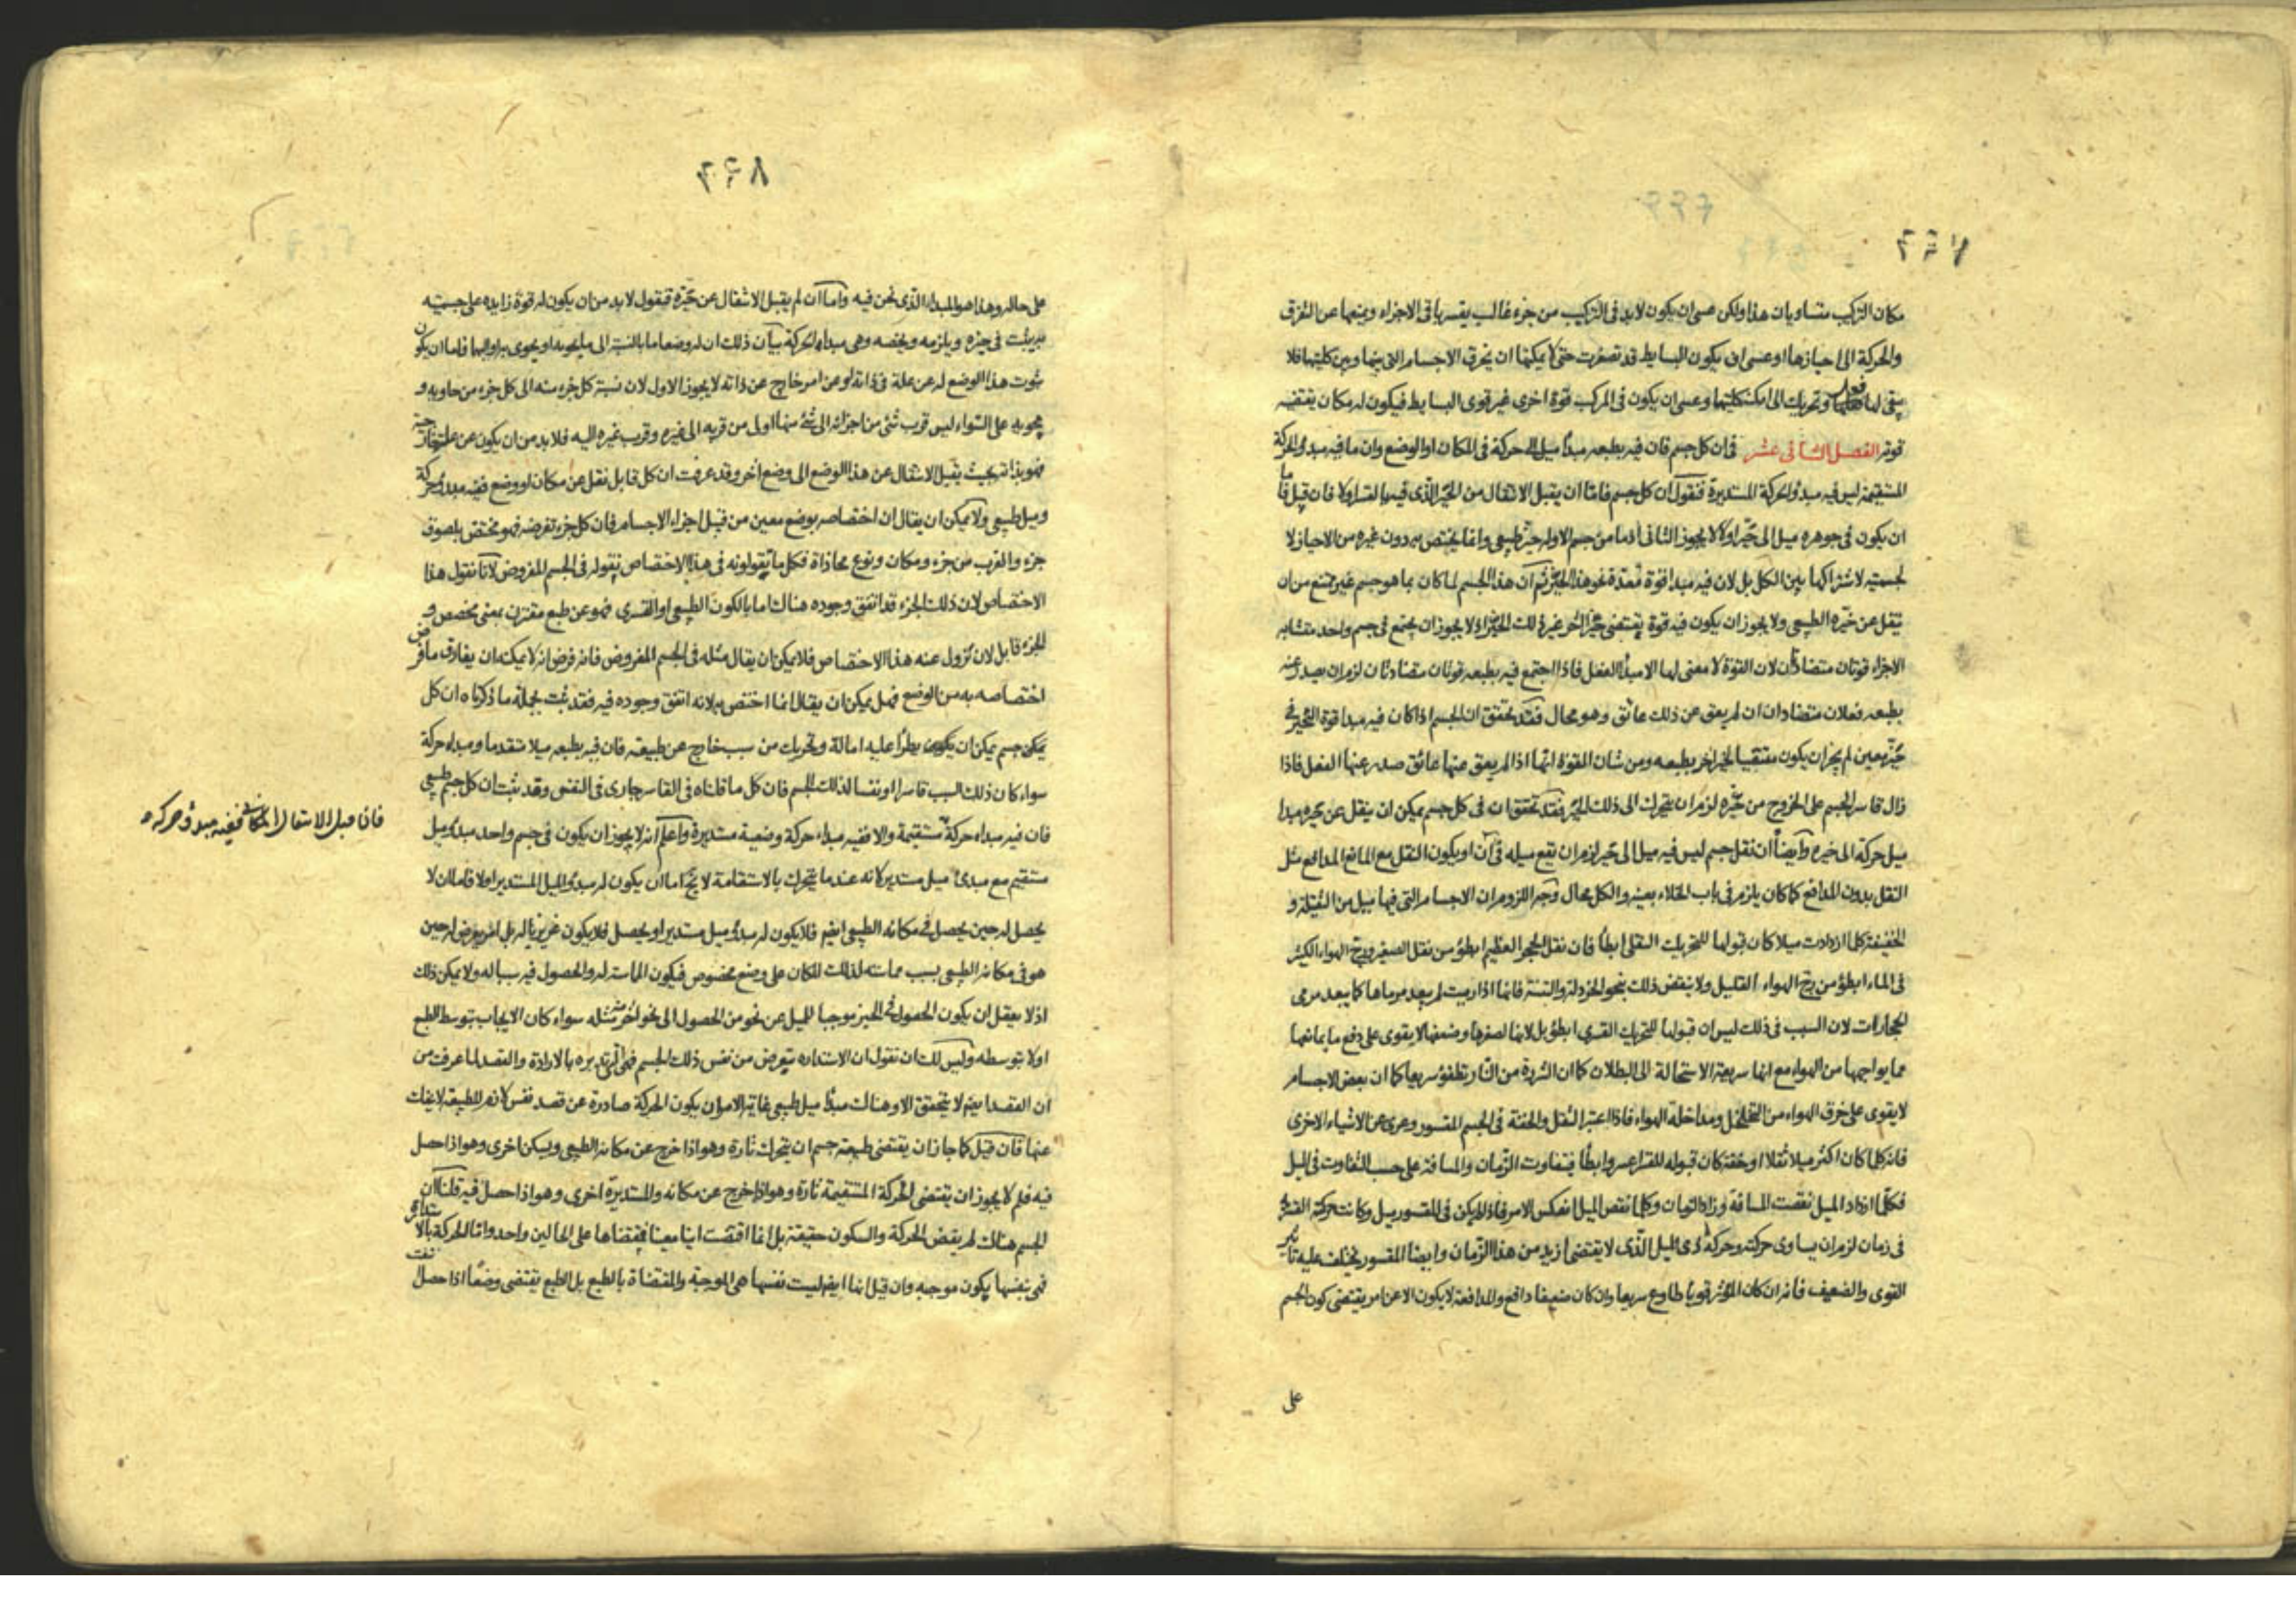 مكان التركيب متساويات هذا ولكن عسى ان يكون لابد فى التركيب من جزء غالب يقسر باقى الاجزاء ويمنعها عن التفرق
والحركة الى احيازها او عسى ان يكون البسايط قد تصغرت حتى لا يمكنها ان يخرق الاجسام التى بينها وبين كليتها فلا
يبقى لها وتحريك الى امكنة كلياتها وعسى ان يكون فى المركب قوة اخرى غير قوى البسايط فيكون له مكان يقتضيه
قوته الفصل الثانى عشر فى ان كل جسم فان فيه بطبعه مبدأ ميل الى حركة فى المكان او الوضع وان ما فيه مبدؤ الحركة
المستقيمة ليس فيه مبدؤ الحركة المستديرة فنقول ان كل جسم فاما ان يقبل الانتقال من الحيز الذى فيه بالقسر اولا فان قبل فاما
ان يكون فى جوهره ميل الى حيز اولا لا يجوز الثانى اذ ما من جسم الا وله حيز طبيعى وانما يختص به دون غيره من الاحياز لا
لجسميته لاشتراكها بين الكل بل لان فيه مبدا قوة معدة نحو هذا الحيز ثم ان هذا الجسم لما كان بما هو جسم غير ممتنع من ان
ينقل عن حيزه الطبيعى ولا يجوز ان يكون فيه قوة يقتضى حيزا آخر غير ذلك الحيز اذ لا يجوز ان يجتمع فى جسم واحد متشابه
الاجزاء قوتان متضادتان لان القوة لا معنى لها الا مبدأ الفعل فاذا اجتمع فيه بطبعه قوتان متضادتان لزم ان يصدر عنه
بطبعه فعلان متضادان ان لم يعق عن ذلك عائق وهو محال فقد تحقق ان الجسم اذا كان فيه مبدا قوة التحيز فى
حيز معين لم يجز ان يكون مقتضيا لحيز آخر بطبعه ومن شان القوة انها اذا لم يعق عنها عائق صدر عنها الفعل فاذا
زال قاسر الجسم على الخروج من حيزه لزم ان يتحرك الى ذلك الحيز فقد تحقق ان فى كل جسم يمكن ان ينقل عن حيزه مبدا
ميل حركة الى حيزه وايضا ان نقل جسم ليس فيه ميل الى حيز لزم ان يقع ميله فى آن او يكون النقل مع المانع المدافع مثل
النقل بدون المدافع كما كان يلزم فى باب الخلاء بعينه والكل محال وجه اللزوم ان الاجسام التى فيها ميل من الثقيلة و
الخفيفة كلما ازدادت ميلا كان قبولها للتحريك النقلى ابطأ فان نقل الحجر العظيم ابطؤ من نقل الصغير وزج الهواء الكثير
فى الماء ابطؤ من زج الهواء القليل ولا ينقض ذلك بنحو الخردلة والتبنة فانها اذا رميت لم يبعد مرماها كما يبعد مرمى
الحجارات لان السبب فى ذلك ليس ان قبولها للتحريك القسرى ابطؤ بل لانها لصغرها وضعفها لا يقوى على دفع ما يمانعها
مما يواجهها من الهواء مع انها سريعة الاستحالة الى البطلان كما ان الشررة من النار تطفؤ سريعا كما ان بعض الاجسام
لا يقوى على خرق الهواء من التخلخل ومداخلة الهواء فاذا اعتبر الثقل والخفة فى الجسم المقسور وعرى عن الاشياء الاخرى
فانه كلما كان اكثر ميلا ثقلا او خفة كان قبوله للقسر اعسر وابطأ فيتفاوت الزمان والمسافة على حسب التفاوت فى الميل
فكلما ازداد الميل نقصت المسافة وزاد الزمان وكلما نقص الميل انعكس الامر فاذا لم يكن فى المقسور ميل وكانت حركته القسرية
فى زمان لزم ان يساوى حركته وحركة ذى الميل الذى لا يقتضى ازيد من هذا الزمان وايضا المقسور يختلف عليه تاثير
القوى والضعيف فانه ان كان المؤثر قويا طاوع سريعا وان كان ضعيفا دافع والمدافعة لا يكون الا عن امر يقتضى كون الجسم
على
٢٣٨
على حاله وهذا هو المبداء الذى نحن فيه واما ان لم يقبل الانتقال عن حيزه فنقول لابد من ان يكون له قوة زايده على جسميته
به يثبت فى حيزه ويلزمه ويخصه وهى مبداء الحركة بيان ذلك ان له وضعا ما بالنسبة الى ما يحويه او يحوى به او اليهما فاما ان يكون
ثبوت هذا الوضع له عن علة فى ذاته او عن امر خارج عن ذاته لا يجوز الاول لان نسبة كل جزء منه الى كل جزء من حاويه و
محويه على السواء ليس قرب شئ من اجزائه الى شئ منها اولى من قربه الى غيره وقرب غيره اليه فلابد من ان يكون عن علة خارجية
فهو بذاته بحيث يقبل الانتقال عن هذا الوضع الى وضع آخر وقد عرفت ان كل قابل نقل عن مكان او وضع ففيه مبدؤ حركة
وميل طبيعى ولا يمكن ان يقال ان اختصاصه بوضع معين من قبيل اجزاء الاجسام فان كل جزء تفرضه فهو مختص بلصوق
جزء والقرب من جزء ومكان ونوع محاذاة فكل ما يقولونه فى هذا الاختصاص نقوله فى الجسم المفروض لانا نقول هذا
الاختصاص لان ذلك الجزء قد اتفق وجوده هناك اما بالكون الطبيعى او القسرى فهو عن طبع مقترن بمعنى مخصص و
الجزء قابل لان تزول عنه هذا الاختصاص فلا يمكن ان يقال مثله فى الجسم المفروض فانه فرض انه لا يمكنه ان يفارق ما فرض
اختصاصه به من الوضع فهل يمكن ان يقال انما اختص به لانه اتفق وجوده فيه فقد ثبت بجملة ما ذكرناه ان كل
يمكن جسم يمكن ان يكون يطرأ عليه امالة وتحريك من سبب خارج عن طبيعته فان فيه بطبعه ميلا متقدما ومبداء حركة
سواء كان ذلك السبب قاسرا او نفسا لذلك الجسم فان كل ما قلناه فى القاسر جارى فى النفس وقد ثبت ان كل جسم طبيعى
فاذا قبل الانتقال المكانى ففيه مبدؤ حركة
فان فيه مبداء حركة مستقيمة والا ففيه مبداء حركة وضعية مستديرة واعلم انه لا يجوز ان يكون فى جسم واحد مبدؤ ميل
مستقيم مع مبدئ ميل مستدير لانه عند ما يتحرك بالاستقامة لا يخ اما ان يكون له مبدؤ الميل المستدير اولا فاما ان لا
يحصل له حين يحصل فى مكانه الطبيعى ايضا فلا يكون له مبدؤ ميل مستدير او يحصل فلا يكون غريزيا له بل امر يعرض له حين
هو فى مكانه الطبيعى بسبب مماسته لذلك المكان على وضع مخصوص فيكون المماسة له والحصول فيه سببا له ولا يمكن ذلك
اذ لا يعقل ان يكون الحصول فى الحيز موجبا للميل عن نحو من الحصول الى نحو آخر مثله سواء كان الايجاب بتوسط الطبع
اولا بتوسطه وليس لك ان تقول ان الاستداره يتعرض من نفس ذلك الجسم فهى التى تديره بالارادة والقصد لما عرفت من
ان القصد ايضا لا يتحقق الا وهناك مبدؤ ميل طبيعى غاية الامر ان يكون الحركة صادرة عن قصد نفس لانه للطبيعة لا يفك
عنها فان قيل كما جاز ان يقتضى طبيعة جسم ان يتحرك تارة وهو اذا خرج عن مكانه الطبيعى ويسكن اخرى وهو اذا حصل
فيه فلم لا يجوز ان يقتضى الحركة المستقيمة تارة وهو اذا خرج عن مكانه والمستديرة اخرى وهو اذا حصل فيه قلنا ان
الجسم هناك لم يقتض الحركة والسكون حقيقة بل انما اقتضت اينا معينا فمقتضاها على الحالين واحد واما الحركة بالاستدارة
فهى بنفسها يكون موجبه وان قيل انها ايضا ليست نفسها هى الموجبة والمقتضاة بالطبع بل الطبع يقتضى وضعا اذا حصل